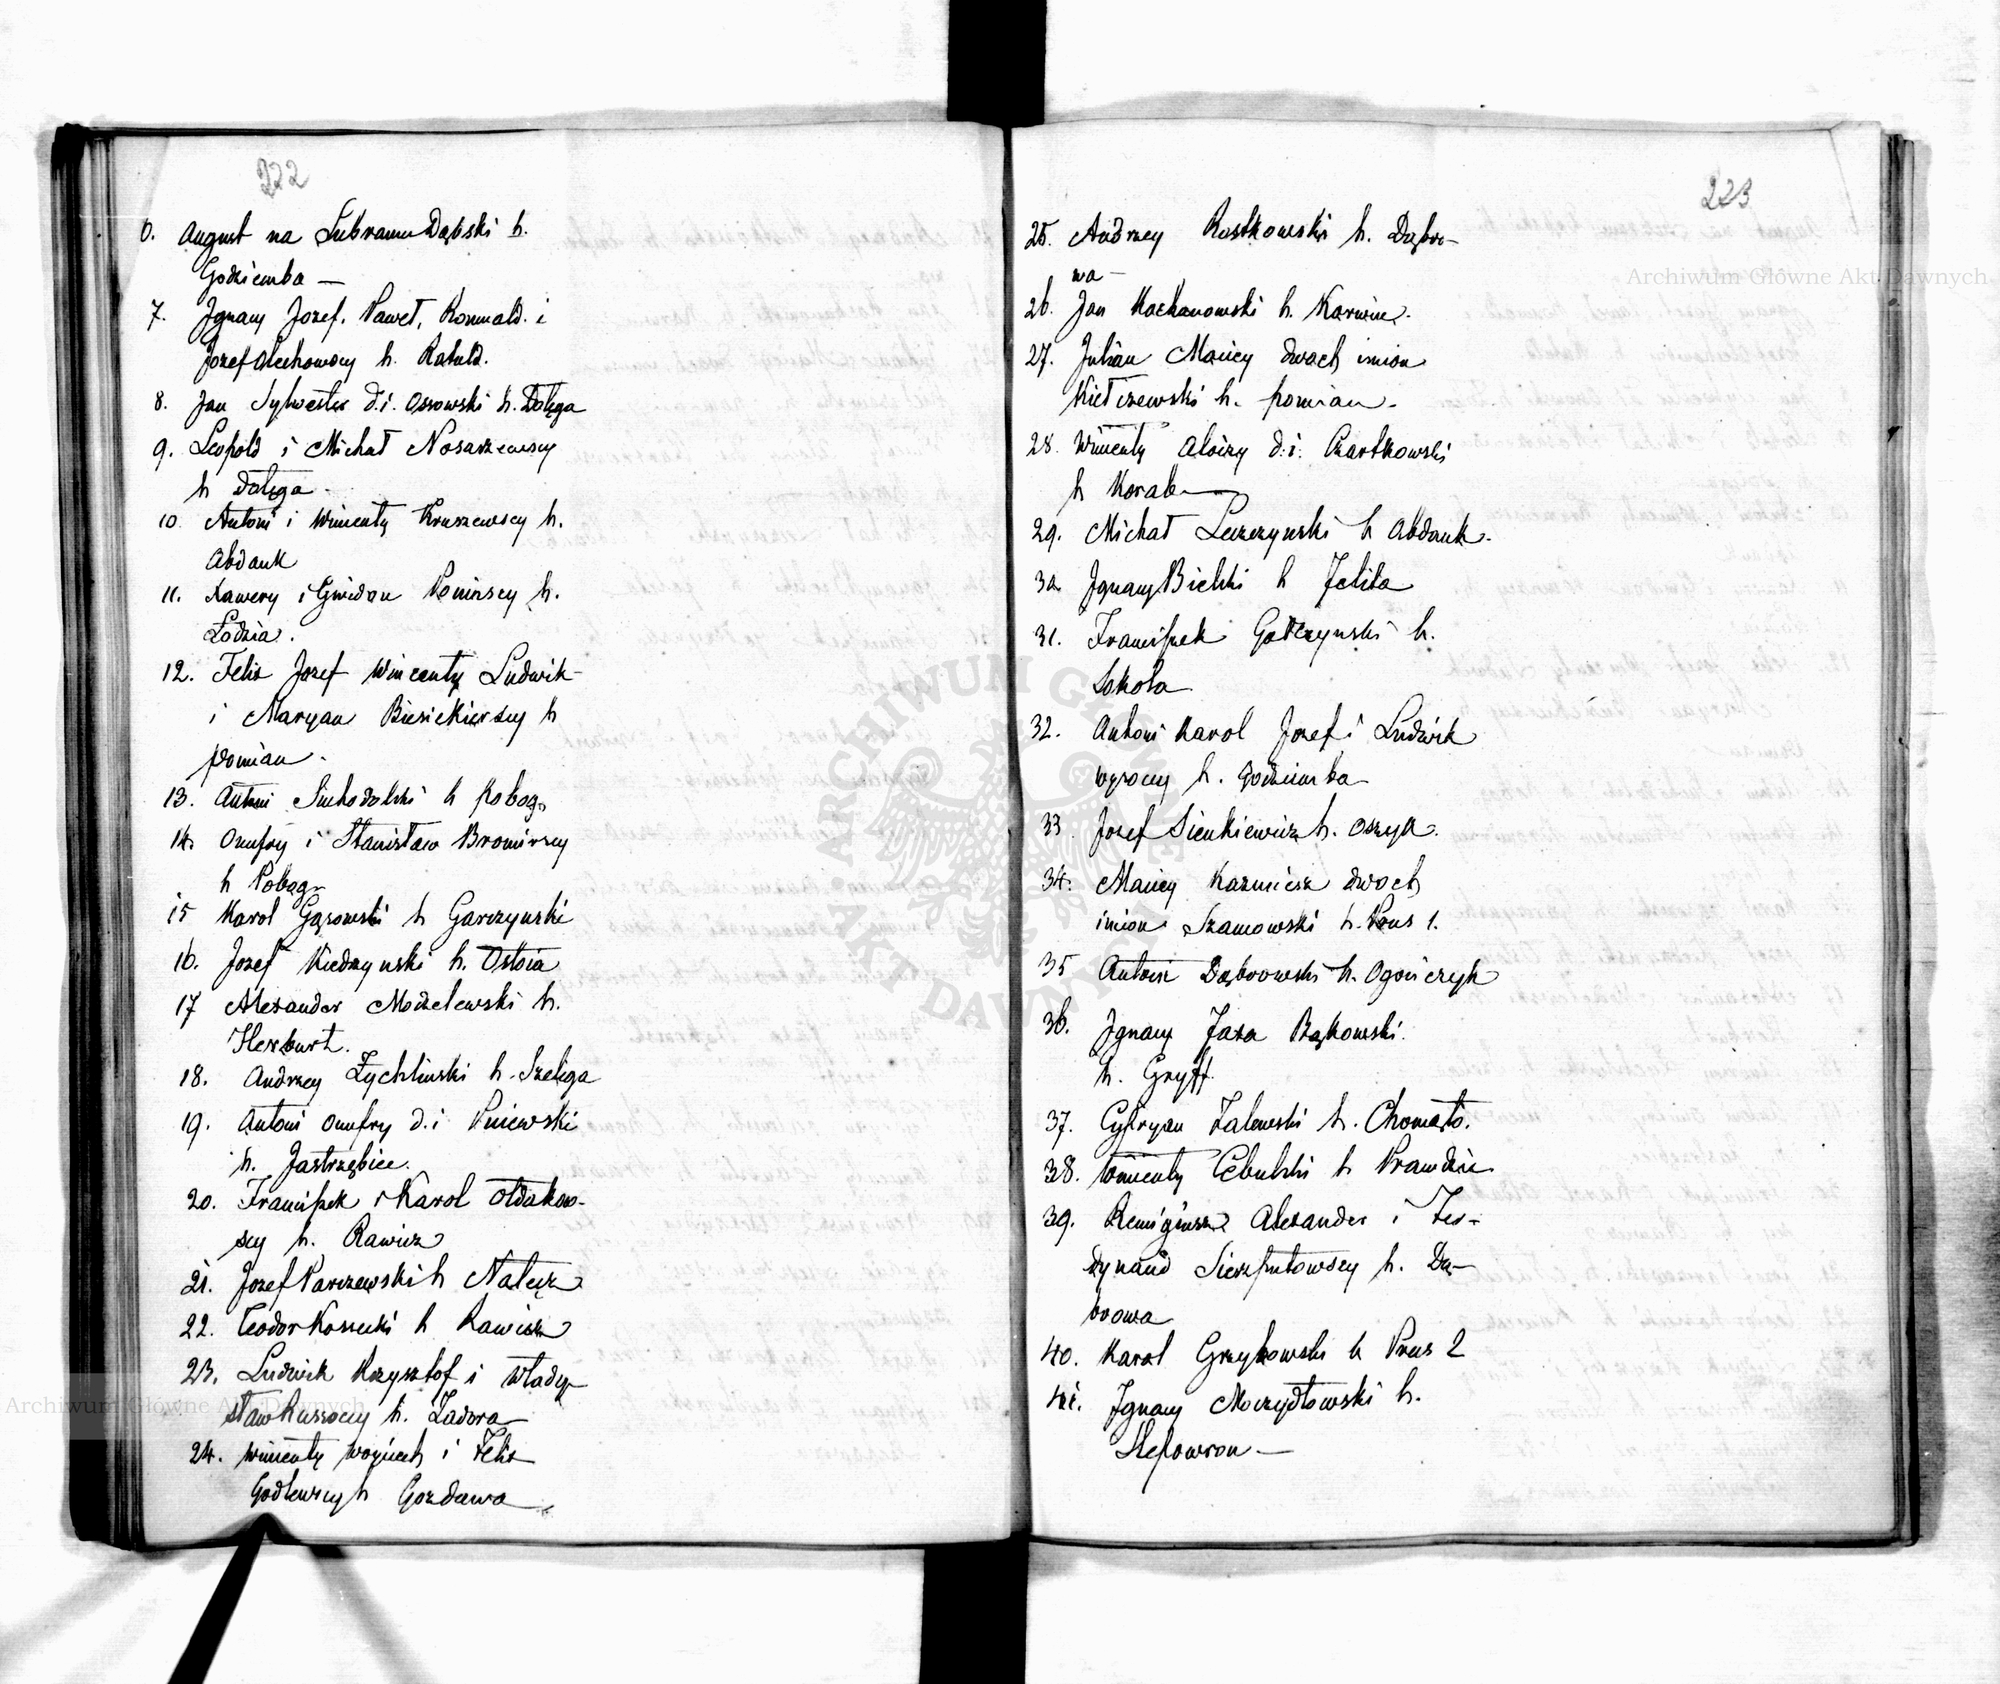 222
6. August na Lubraniu Dąbski h.
Godziemba —
7. Ignacy Jozef, Paweł, Romuald i
Jozef Olechowscy h. Ratuld.
8. Jan Sylwester d.i. Ossowski h. Dołęga
9. Leopold i Michał Nosarzewscy
h Dołęga -
10. Antoni i Wincenty Kruszewscy h.
Abdank
11. Xawery i Gwidon Ponińscy h.
Łodzia.
12. Felix Jozef Wincenty Ludwik
i Maryan Biesiekierscy h
pomian -
13. Antoni Suchodolski h Pobog
14. Onufry i Stanisław Bromirscy
h Pobog
15 Karol Gąsowski h Garczynski
16. Jozef Kiedrzynski h. Ostoia
17 Alexander Modzelewski h.
Herburt.
18. Andrzey Zychlinski h. Szeliga
19. Antoni Onufry d.i Pniewski
h. Jastrzębiec.
20. Franciszek i Karol Ołdakow-
scy h. Rawicz
21. Jozef Parczewski h Nałęcz
22. Teodor Kossecki h Rawicz
23. Ludwik Krzysztof i Włady-
sław Kussoccy h. Zadora
24. Wincenty Woyciech i Felix
Godlewscy h Gozdawa
223
25. Andrzey Rostkowski h. Dąbro-
wa -
26. Jan Kochanowski h. Korwin.
27. Julian Maciey dwoch imion
Kiełczewski h. pomian -
28. Wincenty Aloizy d.i. Czartkowski
h Korab
29. Michał Leczczynski h Abdank.
30. Ignacy Bielski h Jelita
31. Franciszek Gałczynski h.
Sokola
32. Antoni Karol Jozef i Ludwik
Wysoccy h. Godziemba
33. Jozef Sienkiewicz h. Oszyk.
34. Maciey Kazmierz dwoch
imion Szamowski h. Prus 1.
35 Antoni Dąbrowski h. Ogończyk
36. Ignacy Jaxa Bąkowski.
h. Gryff
37. Cypryan Zalewski h. Chomąto.
38. Wincenty Cebulski h Prawdzic
39. Remigiusz Alexander i Fer-
dynand Sierzputowscy h. Dą-
browa
40. Karol Grzybowski h Prus 2
41. Ignacy Moczydłowski h.
Slepowron —
Archiwum Główne Akt Dawnych
Archiwum Główne Akt Dawnych
ARCHIWUM GŁÓWNE • AKT DAWNYCH •